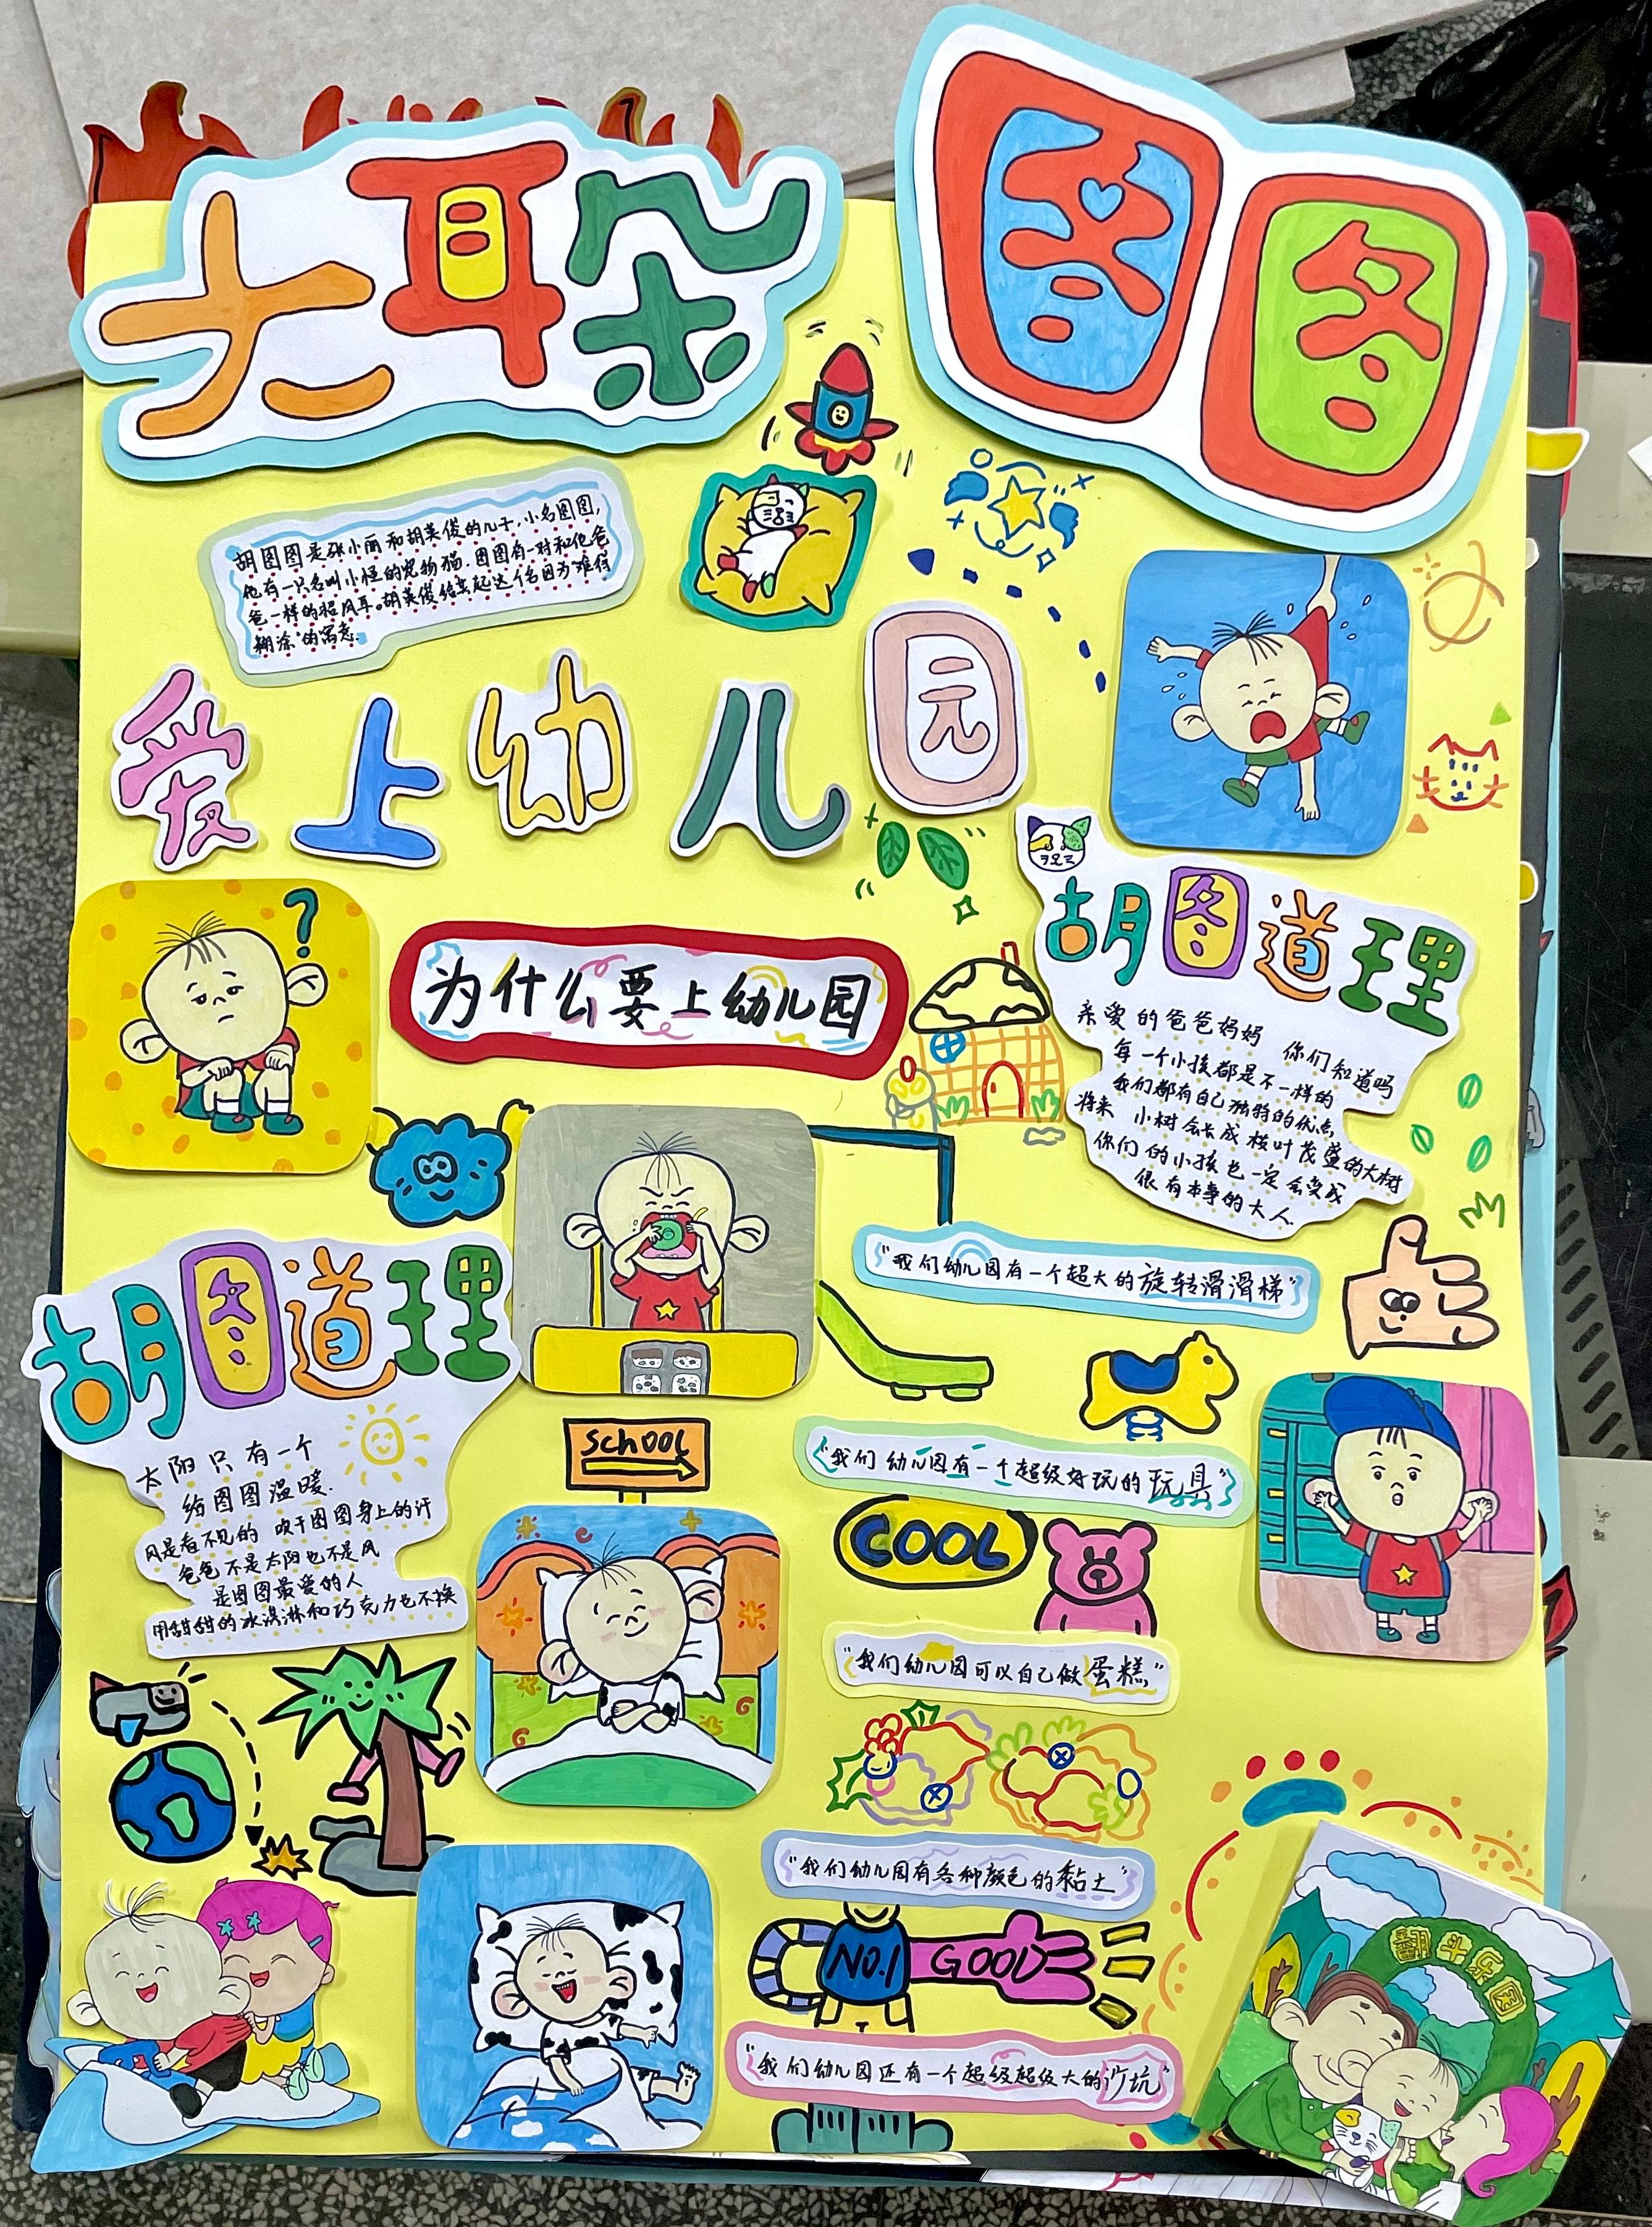 大耳朵
图图
胡图图是张小丽和胡英俊的儿子,小名图图,
他有一只名叫小怪的宠物猫.图图有一对和他爸
爸一样的招风耳。胡英俊给其起这个名因为“难得
糊涂”的寓意.
爱上幼儿园
?
为什么要上幼儿园
胡图道理
亲爱的爸爸妈妈 你们知道吗
每一个小孩都是不一样的
我们都有自己独特的优点
将来 小树会长成枝叶茂盛的大树
你们的小孩也一定会变成
很有本事的大人
“我们幼儿园有一个超大的旋转滑滑梯”
胡图道理
太阳只有一个
给图图温暖.
风是看不见的 吹干图图身上的汗
爸爸不是太阳也不是风
是图图最爱的人
用甜甜的冰淇淋和巧克力也不换
SCHOOL
“我们幼儿园有一个超级好玩的玩具”
COOL
“我们幼儿园可以自己做蛋糕”
“我们幼儿园有各种颜色的黏土”
NO.1 GOOD
翻斗乐园
“我们幼儿园还有一个超级超级大的沙坑”